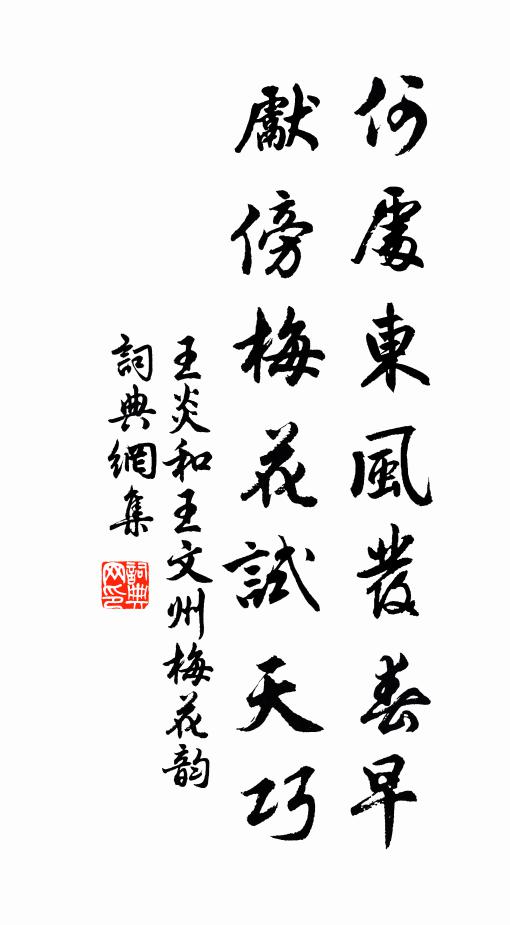 何處東風發春早
獻傍梅花試天巧
王炎和王文州梅花韵
詞典網集
詞典网印